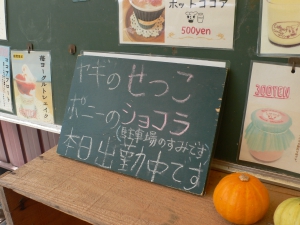 ホットココア
500yen
桜ヨーグルトシェイク
ヤギの せっこ
ポニーの ショコラ
(駐車場のすみです)
本日 出勤中です
300YEN